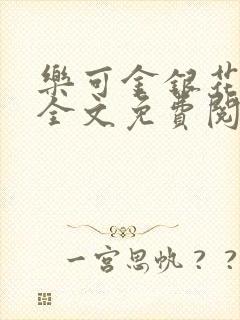 樂可金銀花
全文免費閱
一宮思帆？？